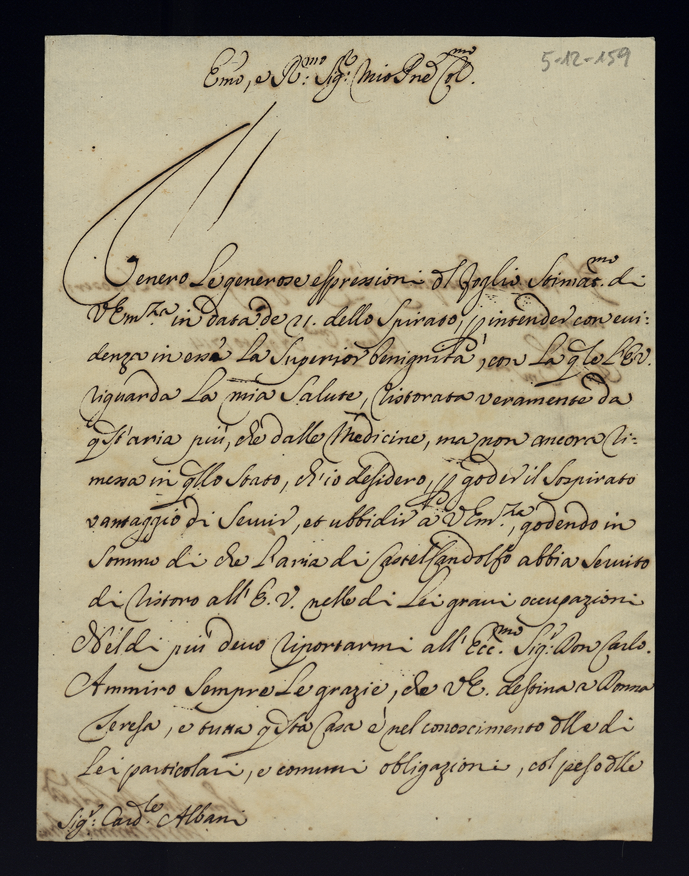 5-12-159
Emo, e Rmo: Sigr: Mio Pne Colmo.
Venero le generose espressioni dl foglio stimatmo. di
V Emza. in data de 21. dello Spirato, p intender con evi:
denza in esse La Superior benignità, con La qle l'E.V.
riguarda La mia Salute, ristorata veramente da
qst'aria più, che dalle Medicine, ma non ancora ri:
messa in qllo Stato, ch'io desidero, p goder il Sospirato
vantaggio di Servir, et ubbidir à V Emza., godendo in
sommo di che l'aria di Castel Gandolfo abbia Servito
di ristoro all'E. V. nelle di Lei gravi occupazioni
Nel di più devo riportarmi all'Eccmo. Sigr: Don Carlo.
Ammiro Sempre Le grazie, che VE. destina a Donna
Teresa, e tutta qsta Casa è nel conoscimento dlle di
Lei particolari, e comuni obligazioni, col peso dlle
Sigr: Cardle. Albani